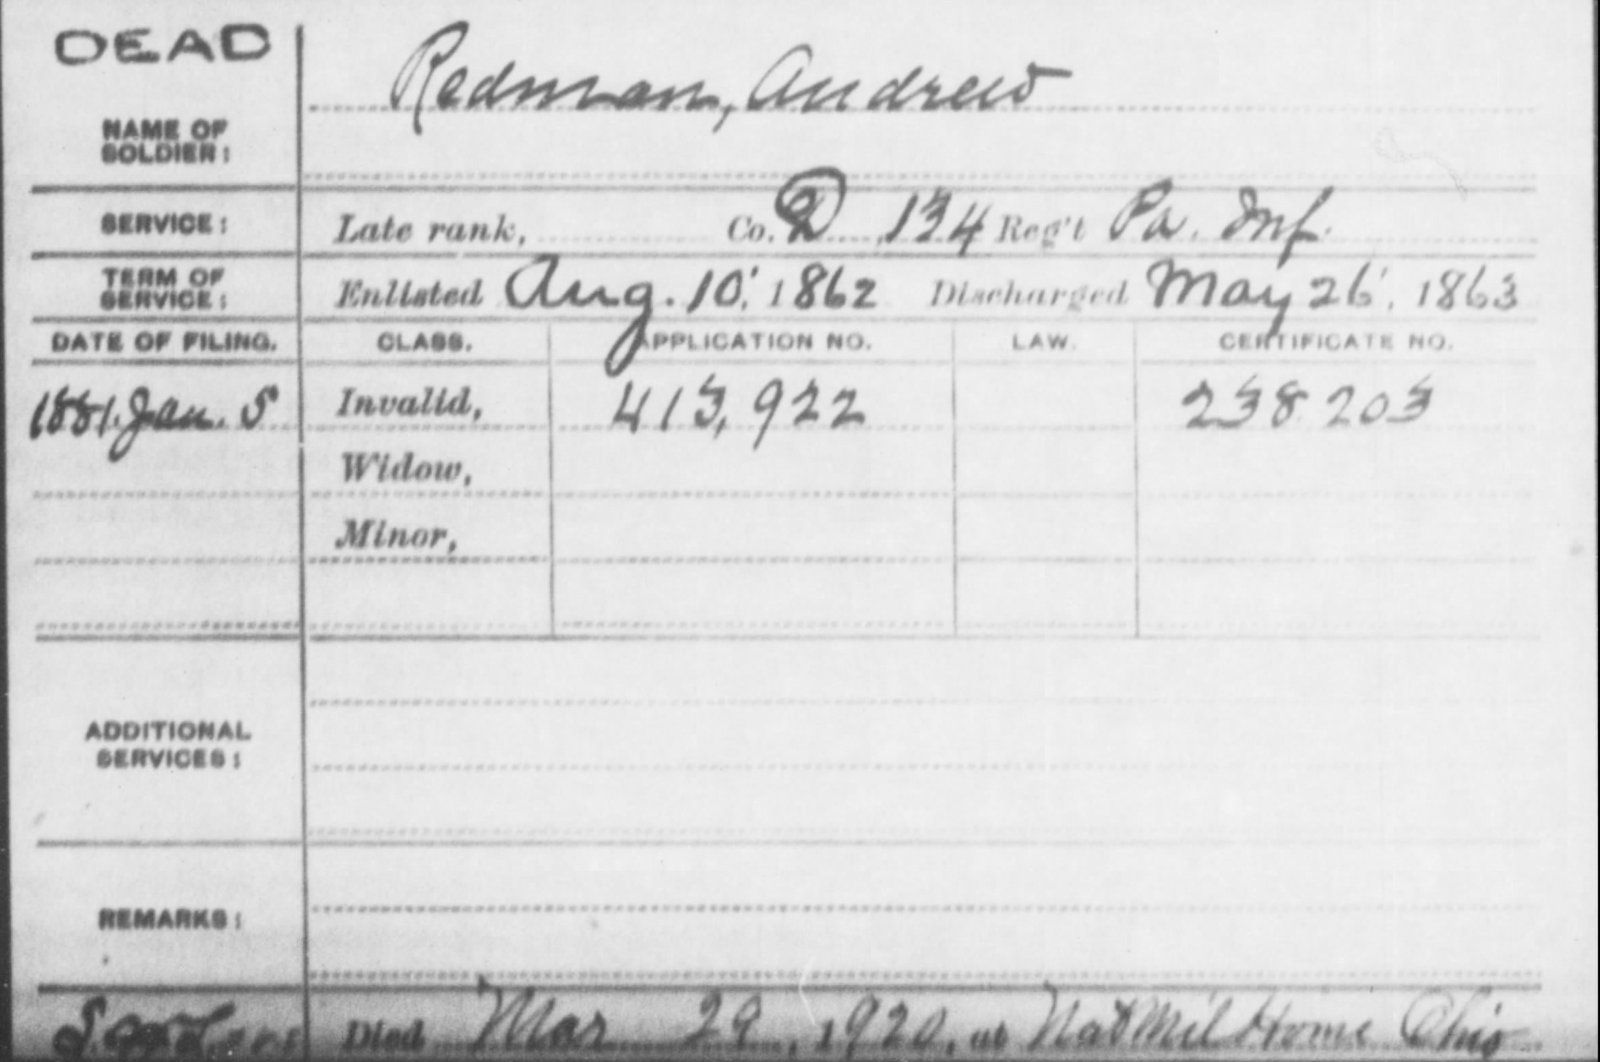 DEAD
Redman, Andrew
NAME OF
SOLDIER:
SERVICE: Late rank, Co. D, 134 Reg't Pa. Inf.
TERM OF
SERVICE: Enlisted Aug. 10, 1862 Discharged May 26, 1863
DATE OF FILING. CLASS. APPLICATION NO. LAW. CERTIFICATE NO.
1881. Jan. 5 Invalid, 413,922 238 203
Widow,
Minor,
ADDITIONAL
SERVICES:
REMARKS:
Died Mar 29, 1920, at Nat Mil Home Ohio